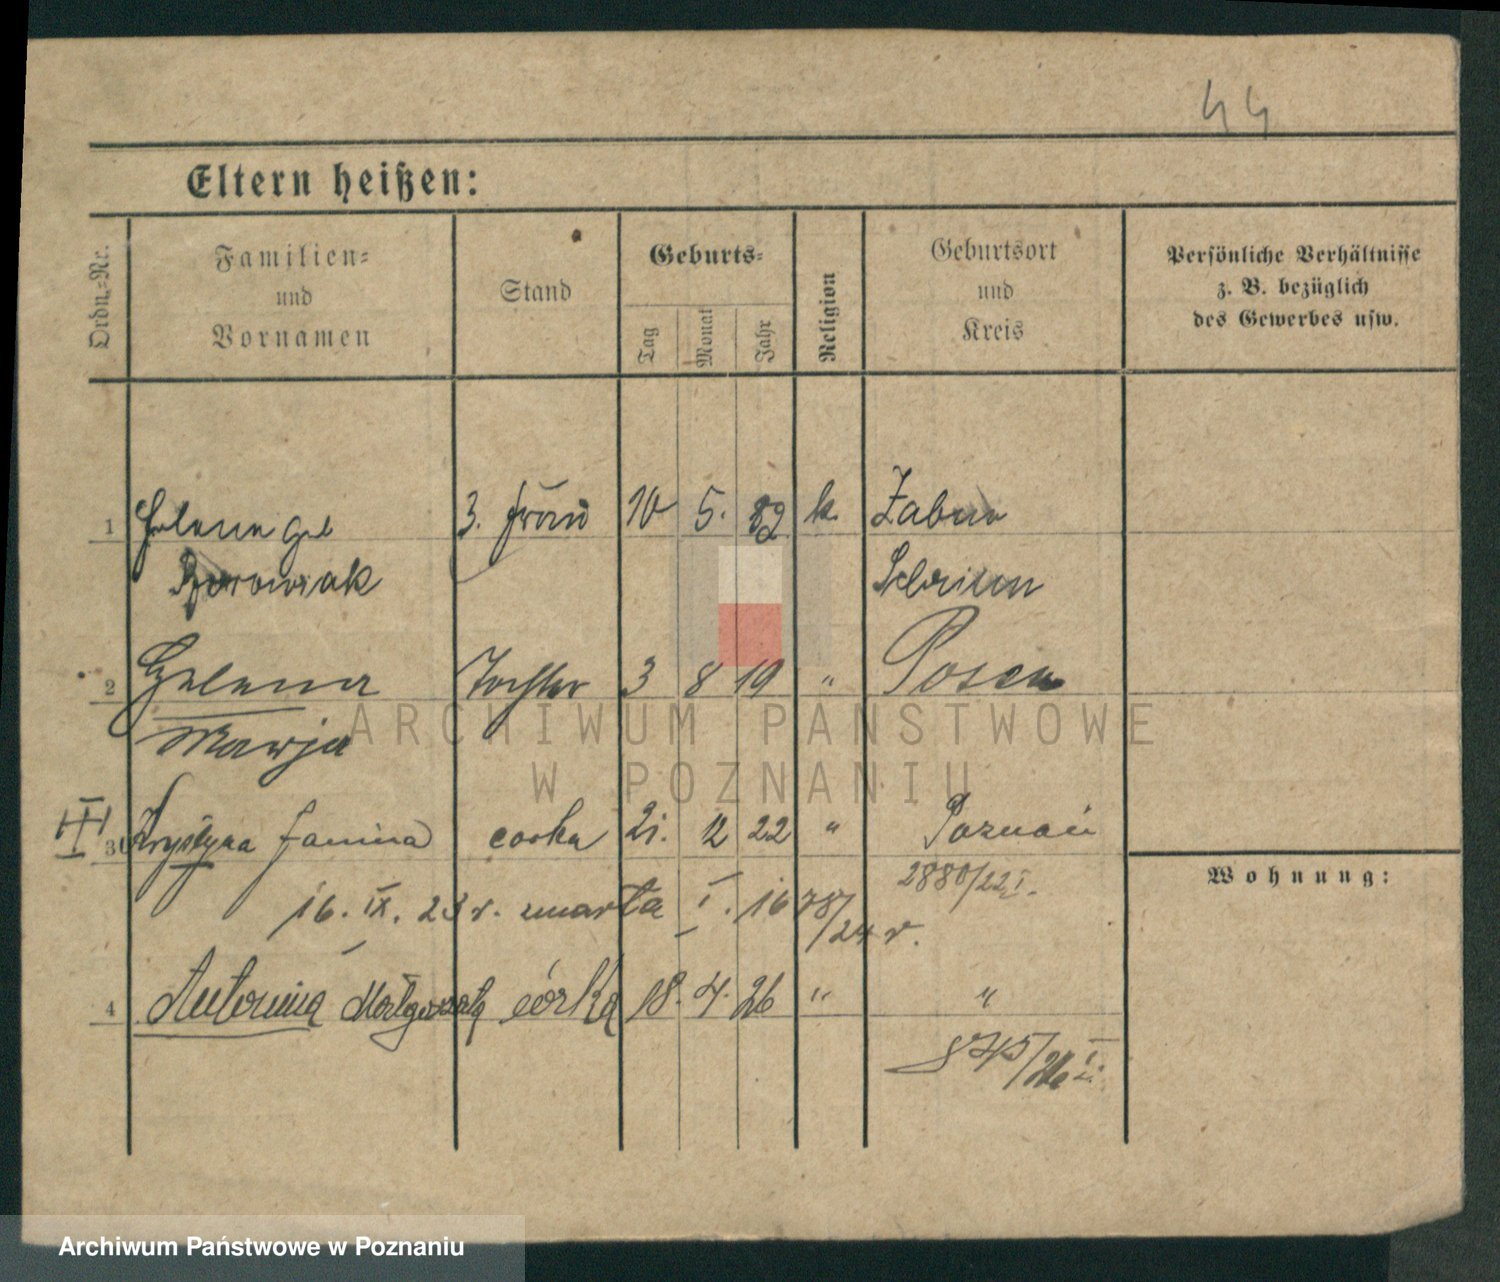 44
Eltern heißen:
Ordn.-Nr.
Familien-
und
Vornamen
Stand
Geburts-
Tag
Monat
Jahr
Religion
Geburtsort
und
Kreis
Persönliche Verhältnisse
z. B. bezüglich
des Gewerbes usw.
1 Helene geb 3. Frau 10 5. 89 k. Zabno
Borowiak Schrimm
2 Helena Tochter 3 8 19 " Posen
Marja
3 Krystyna Janina corka 21. 12 22 " Poznań
2880/22 I.
16. IX. 23 r. zmarła I. 1678/24 r.
4 Antonina Małgorzata córka 18. 4. 26 " "
875/26 I
Wohnung:
ARCHIWUM PAŃSTWOWE
W POZNANIU
Archiwum Państwowe w Poznaniu